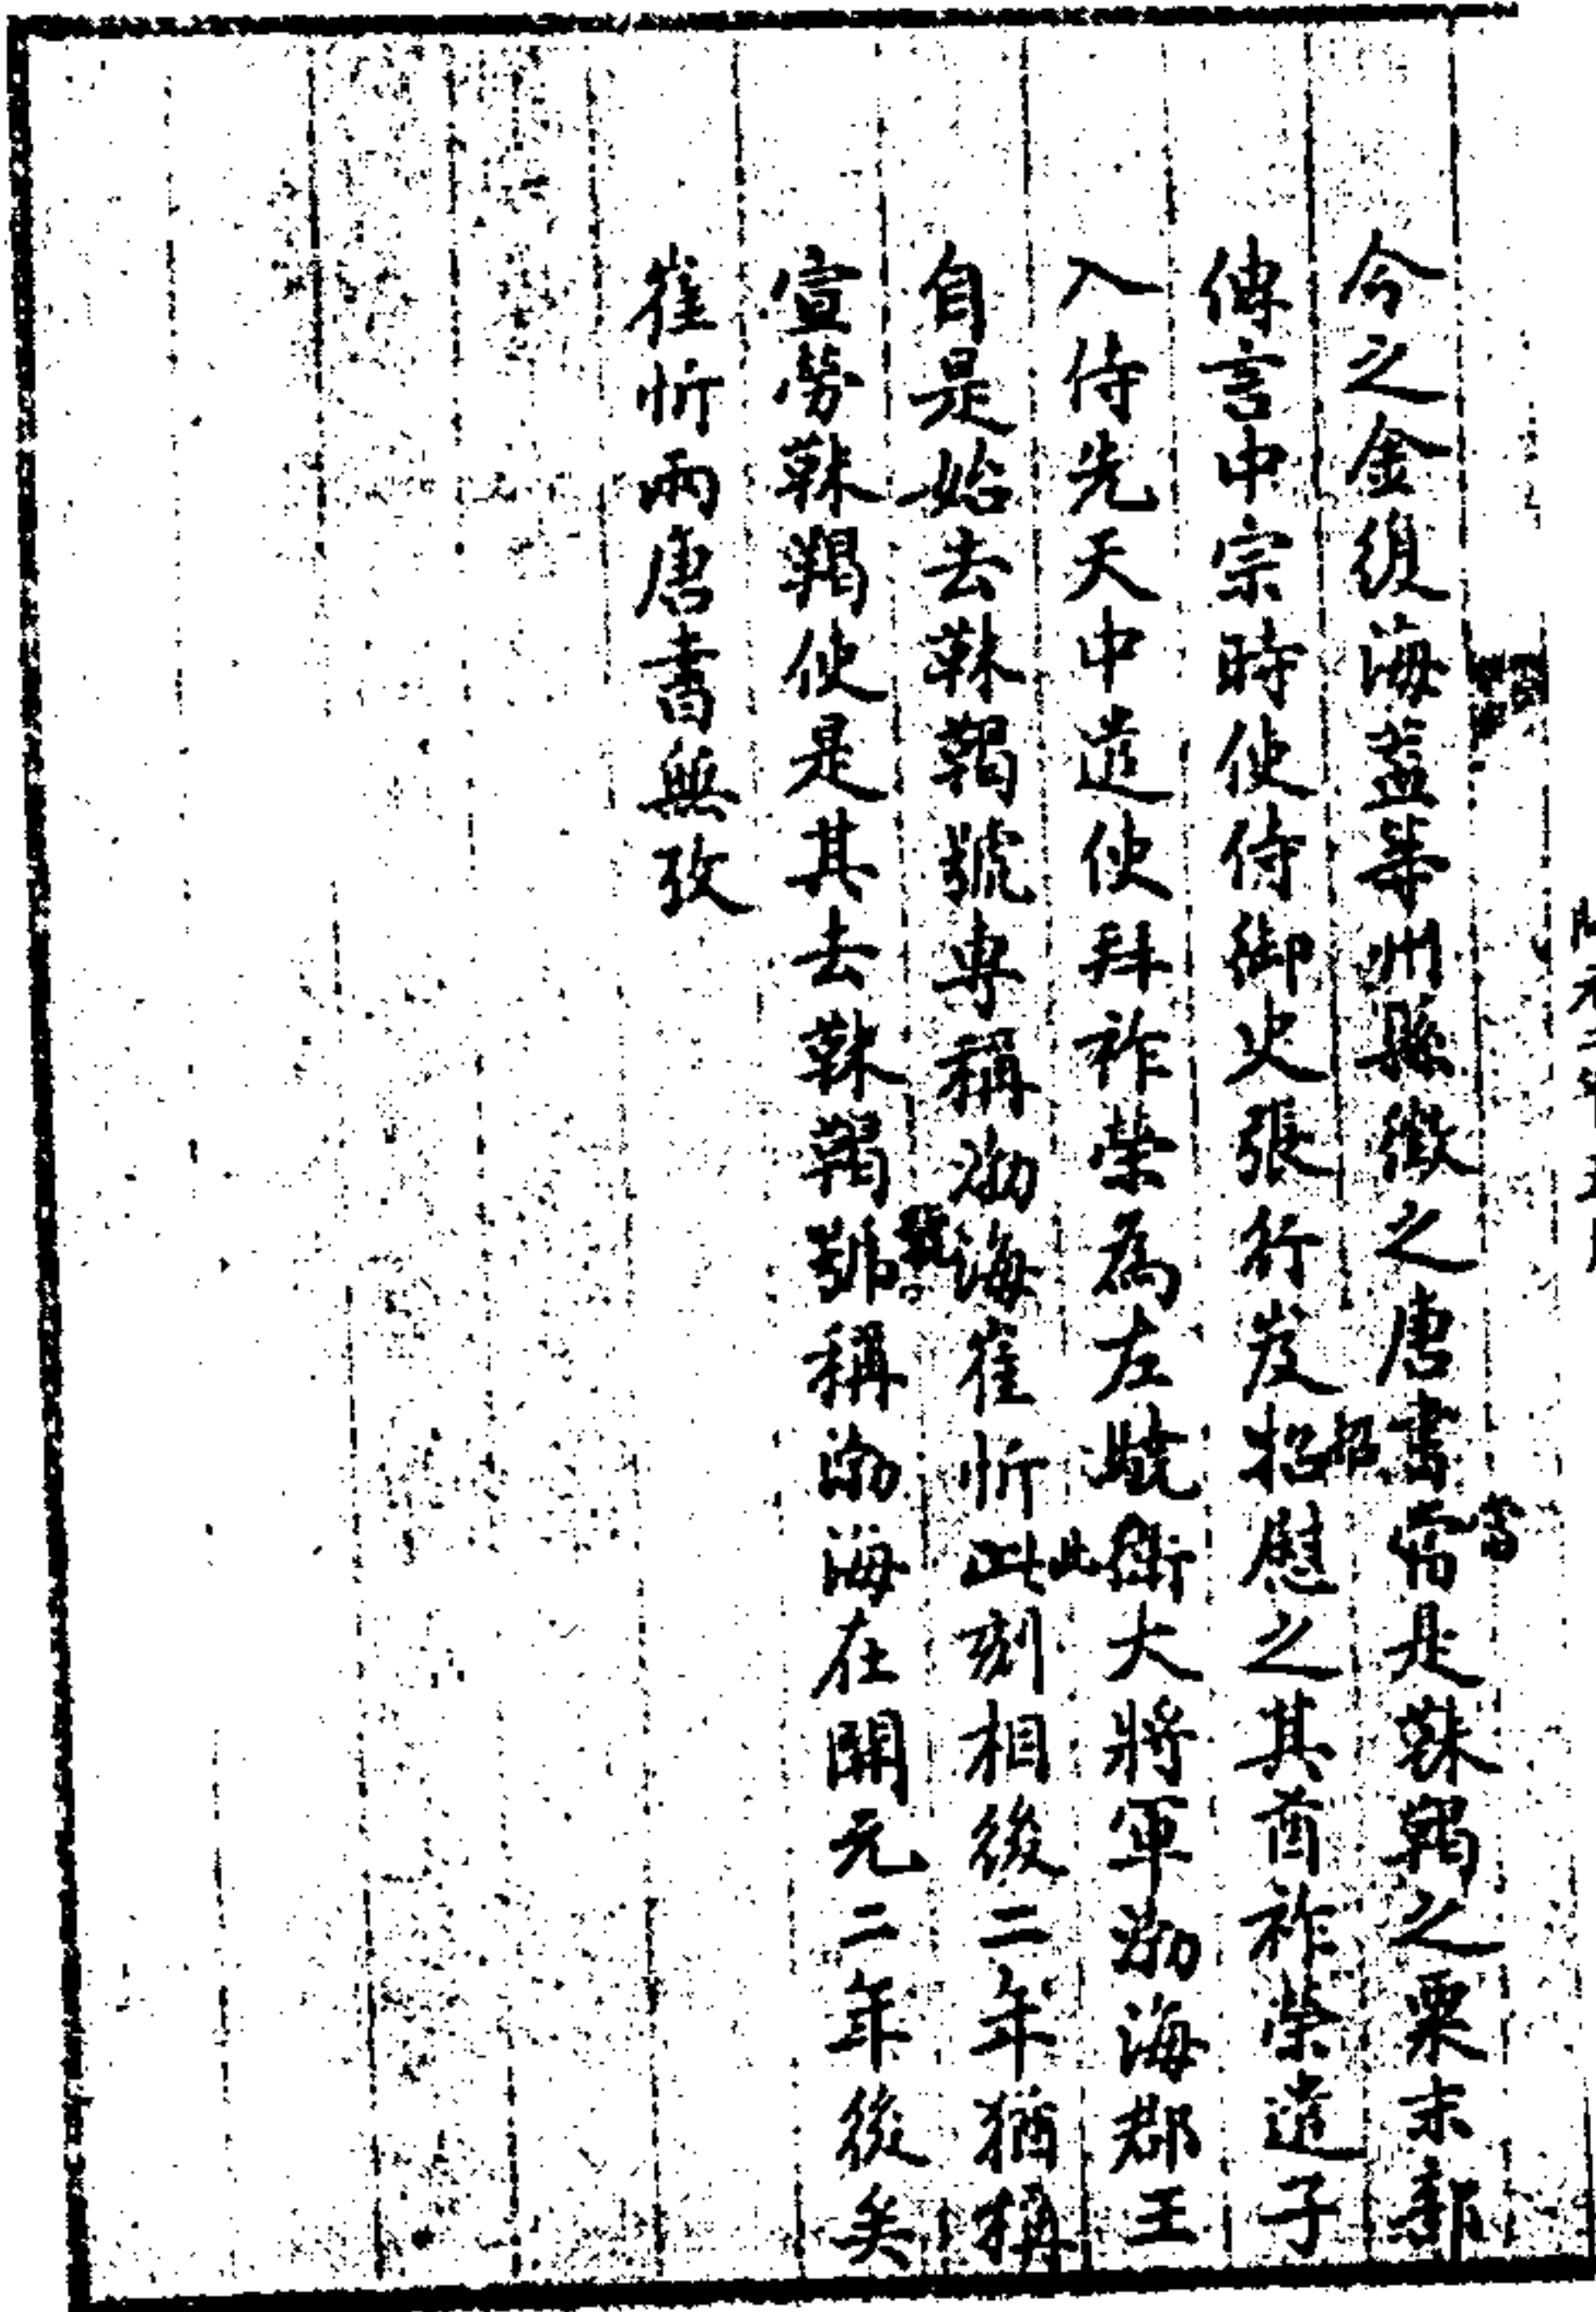 今之金復海蓋等州縣徵之唐書當是靺鞨之粟末部
當
傳言中宗時使侍御史張行岌招慰之其酋祚榮遣子
招
入侍先天中遣使拜祚榮為左驍衛大將軍渤海郡王
自是始去靺鞨號專稱渤海崔忻此刻相後二年猶稱
此
宣勞靺鞨使是其去靺鞨號稱渤海在開元二年後矣
號
崔忻兩唐書無攷